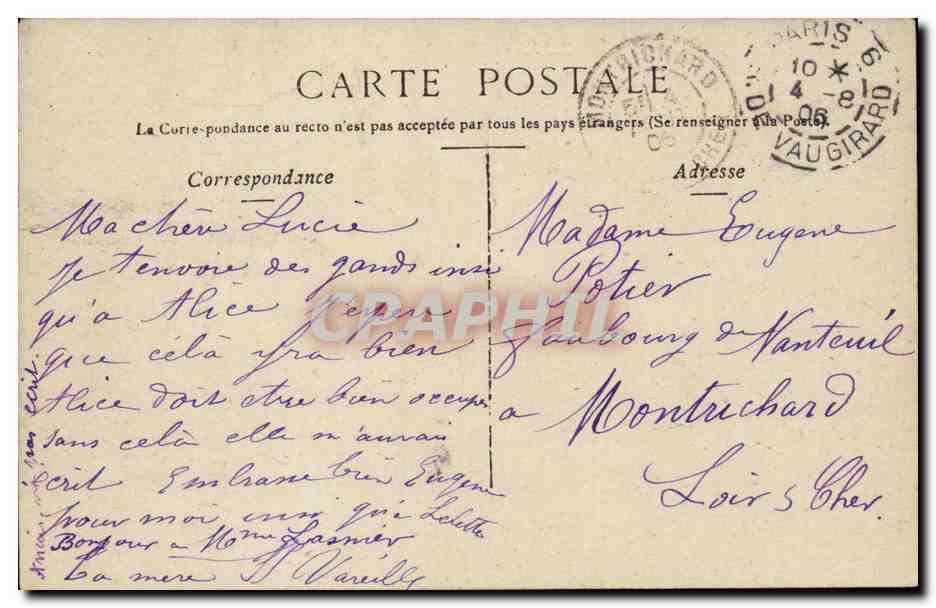 CARTE POSTALE
La Corre-pondance au recto n'est pas acceptée par tous les pays étrangers (Se renseigner à la Poste).
MONTRICHARD
06
PARIS 6
10 *
4 - 8
06
R. DE VAUGIRARD
Correspondance
Ma chère Lucie
Je t'envoie des gands insi
qu'a Alice j'espère
que célà yra bien
Alice doit etre bien occupé
sans celà elle m'aurai
écrit Embrasse bien Eugene
pour moi insi qu'a
Bonjour a Mme Lasnier
Ta mère Vareille
pas écrit
Adresse
Madame Eugene
Potier
Faubourg de Nanteuil
a Montrichard
Loir & Cher
CPAPHIL